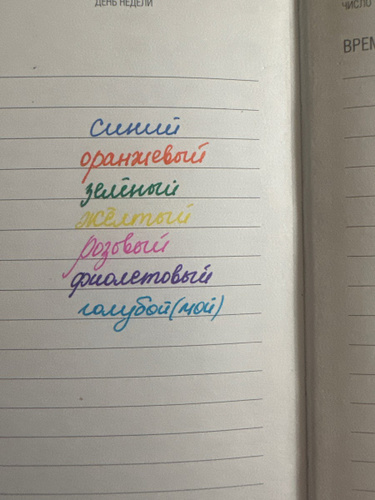 ДЕНЬ НЕДЕЛИ
ЧИСЛО
синий
оранжевый
зелёный
жёлтый
розовый
фиолетовый
голубой(мой)